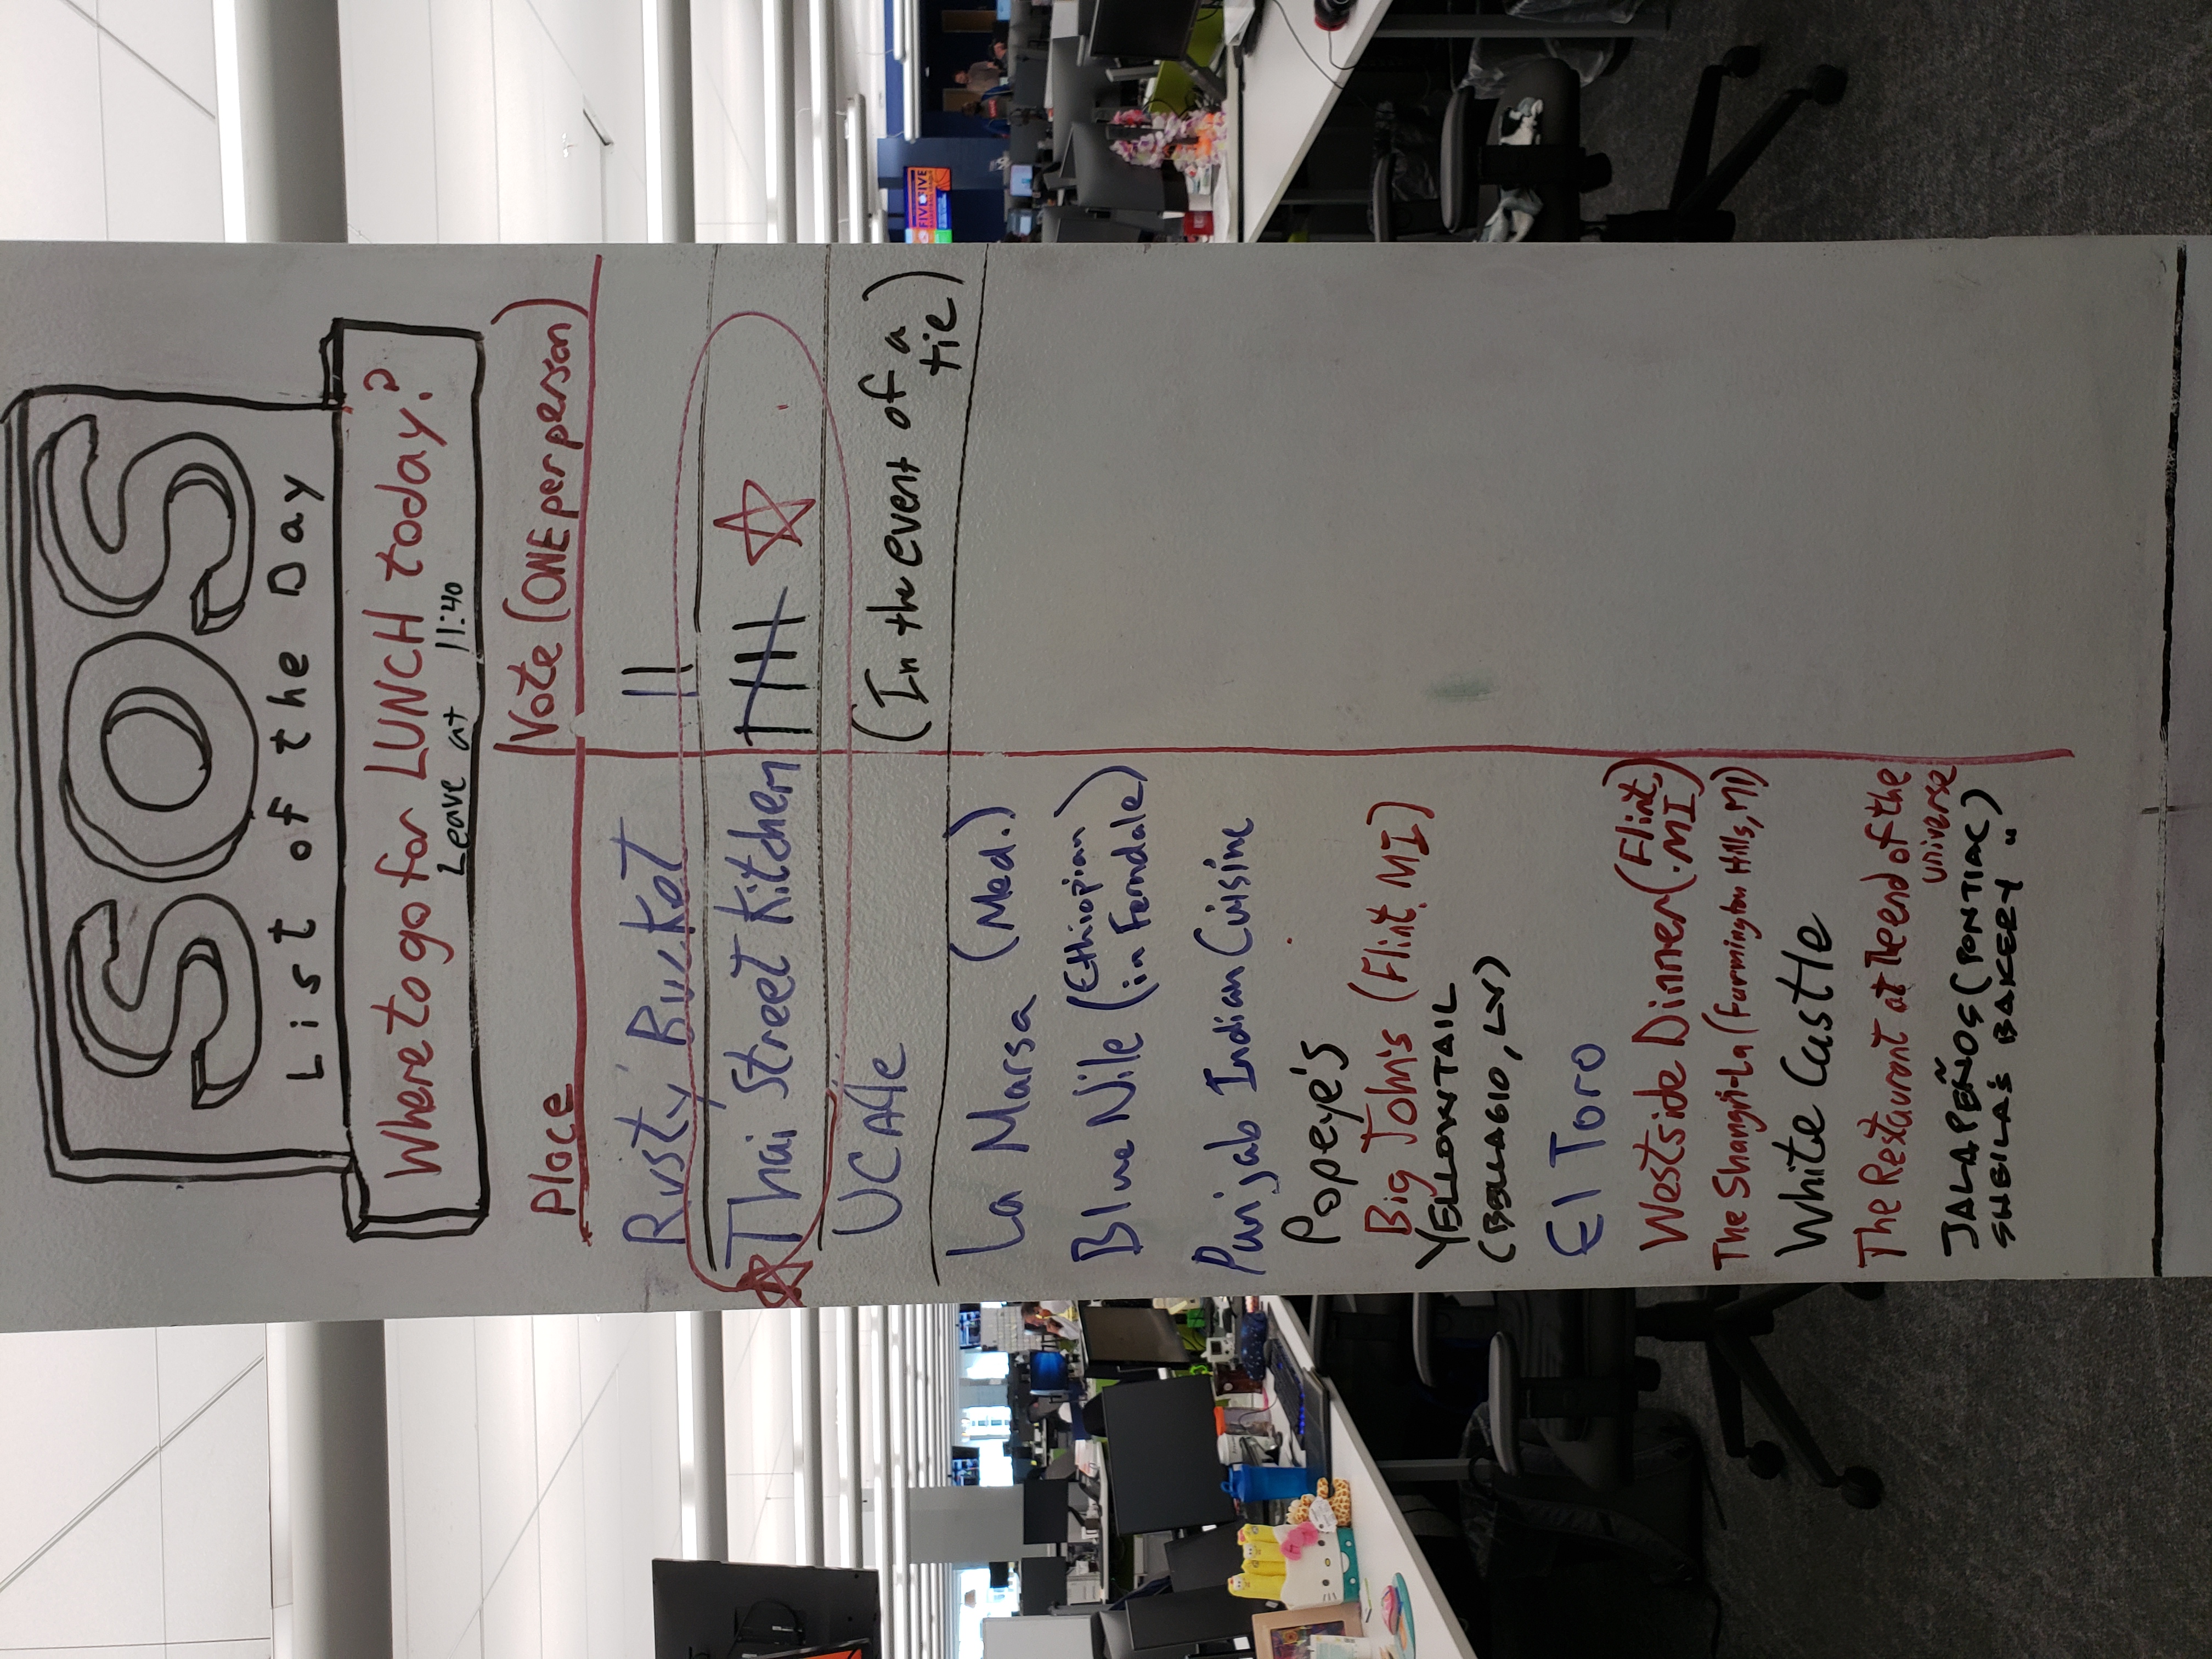 SOS
List of the Day
Where to go for LUNCH today?
Leave at 11:40
Place
Vote (ONE per person)
Rusty Bucket
Thai Street Kitchen
UCAfe
(In the event of a
tie)
La Marsa (Med.)
Blue Nile (Ethiopian
in Ferndale)
Punjab Indian Cuisine
Popeye's
Big John's (Flint, MI)
YELLOWTAIL
(BELLAGIO, LV)
El Toro
Westside Dinner (Flint,
MI)
The Shangri-La (Farmington Hills, MI)
White Castle
The Restaurant at The end of the
universe
JALAPEÑOS (PONTIAC)
SHEILA'S BAKERY "
FIVE FIVE